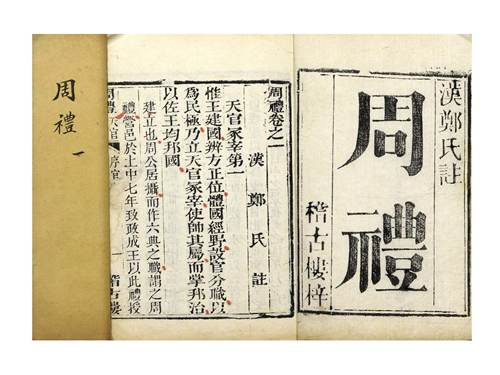 漢鄭氏註
周禮
稽古樓梓
周禮卷之一
漢 鄭氏註
天官冢宰第一
惟王建國辨方正位體國經野設官分職以
爲民極乃立天官冢宰使帥其屬而掌邦治
以佐王均邦國
建立也周公居攝而作六典之職謂之周
禮營邑於土中七年致政成王以此禮授
周禮 天官 序官 一 稽古樓
周禮 一